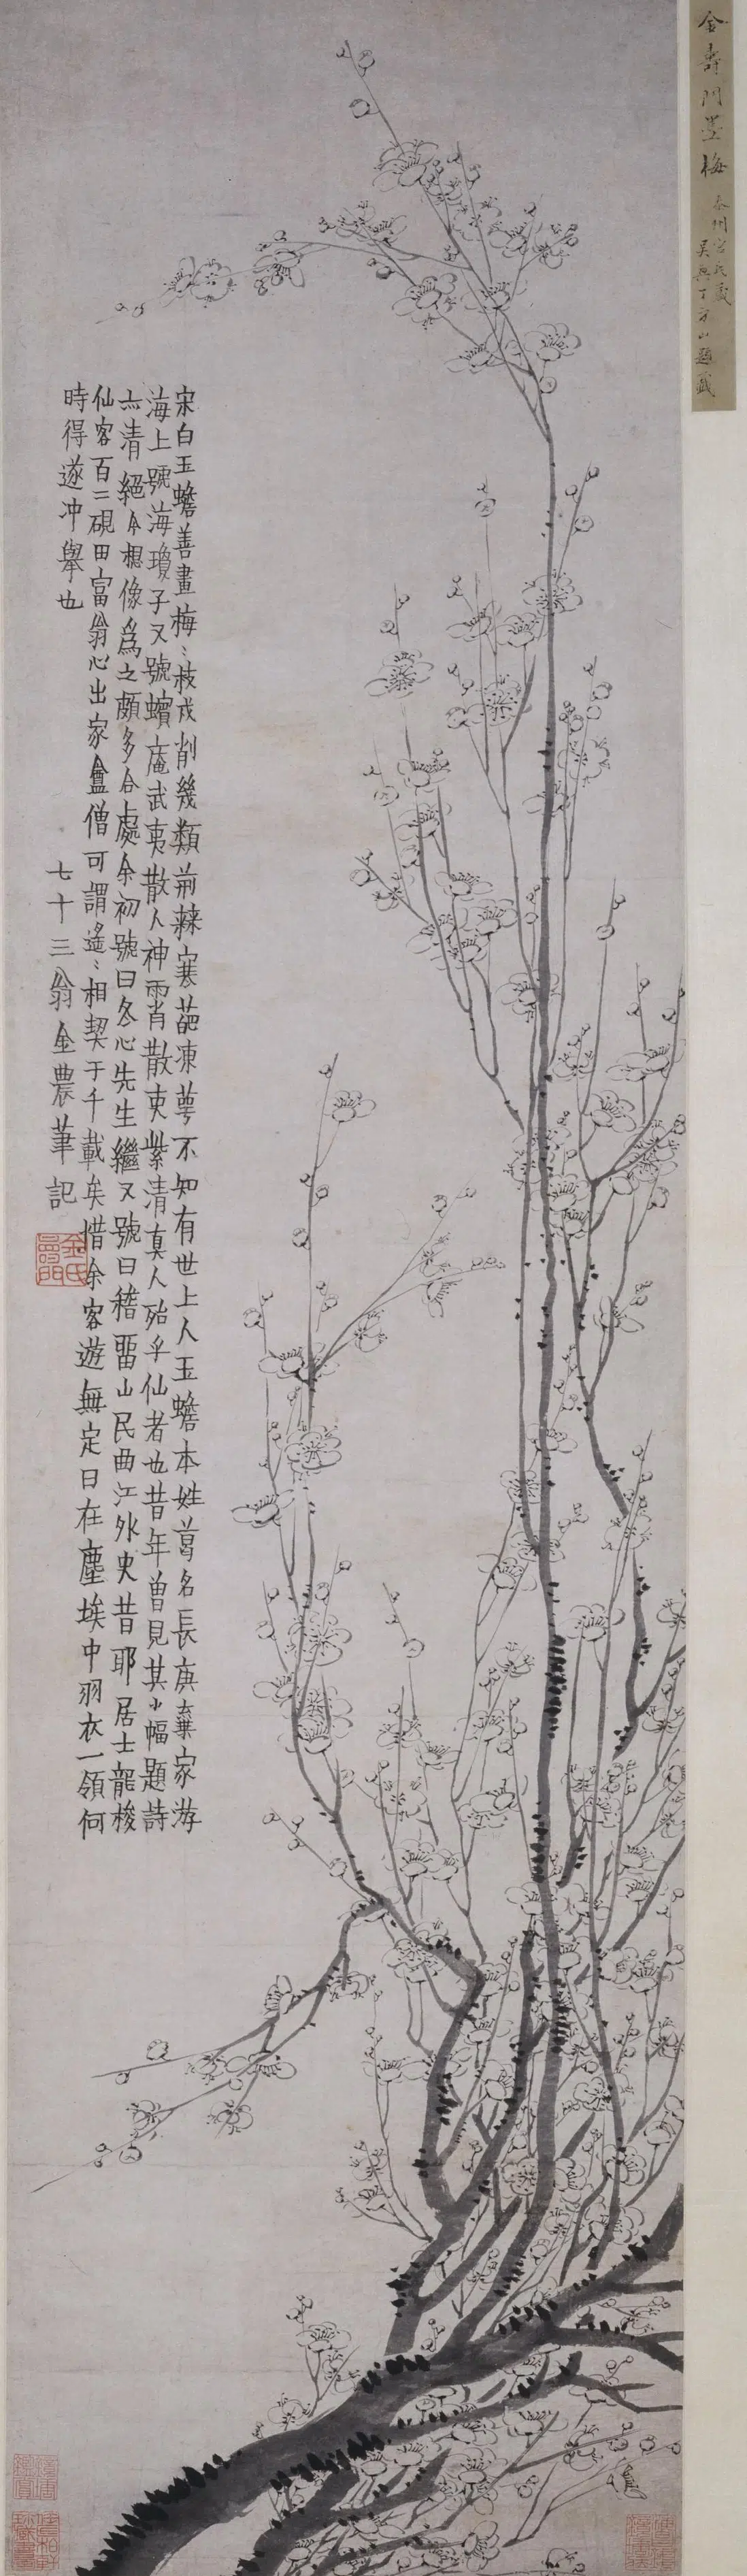 金壽門墨梅
吳興丁 題籤
宋白玉蟾善畫梅〻枝戍削幾類荊棘寒葩凍萼不知有世上人玉蟾本姓葛名長庚棄家游
海上號海瓊子又號蠙庵武夷散人神霄散吏紫清真人殆乎仙者也昔年曾見其小幅題詩
亦清絕今想像爲之頗多合處余初號曰冬心先生繼又號曰稽畱山民曲江外史昔耶居士龍梭
仙客百二硯田富翁心出家盦僧可謂遙〻相契于千載矣惜余客遊無定日在塵埃中羽衣一領何
時得遂冲舉也
七十三翁金農筆記
金氏
壽門